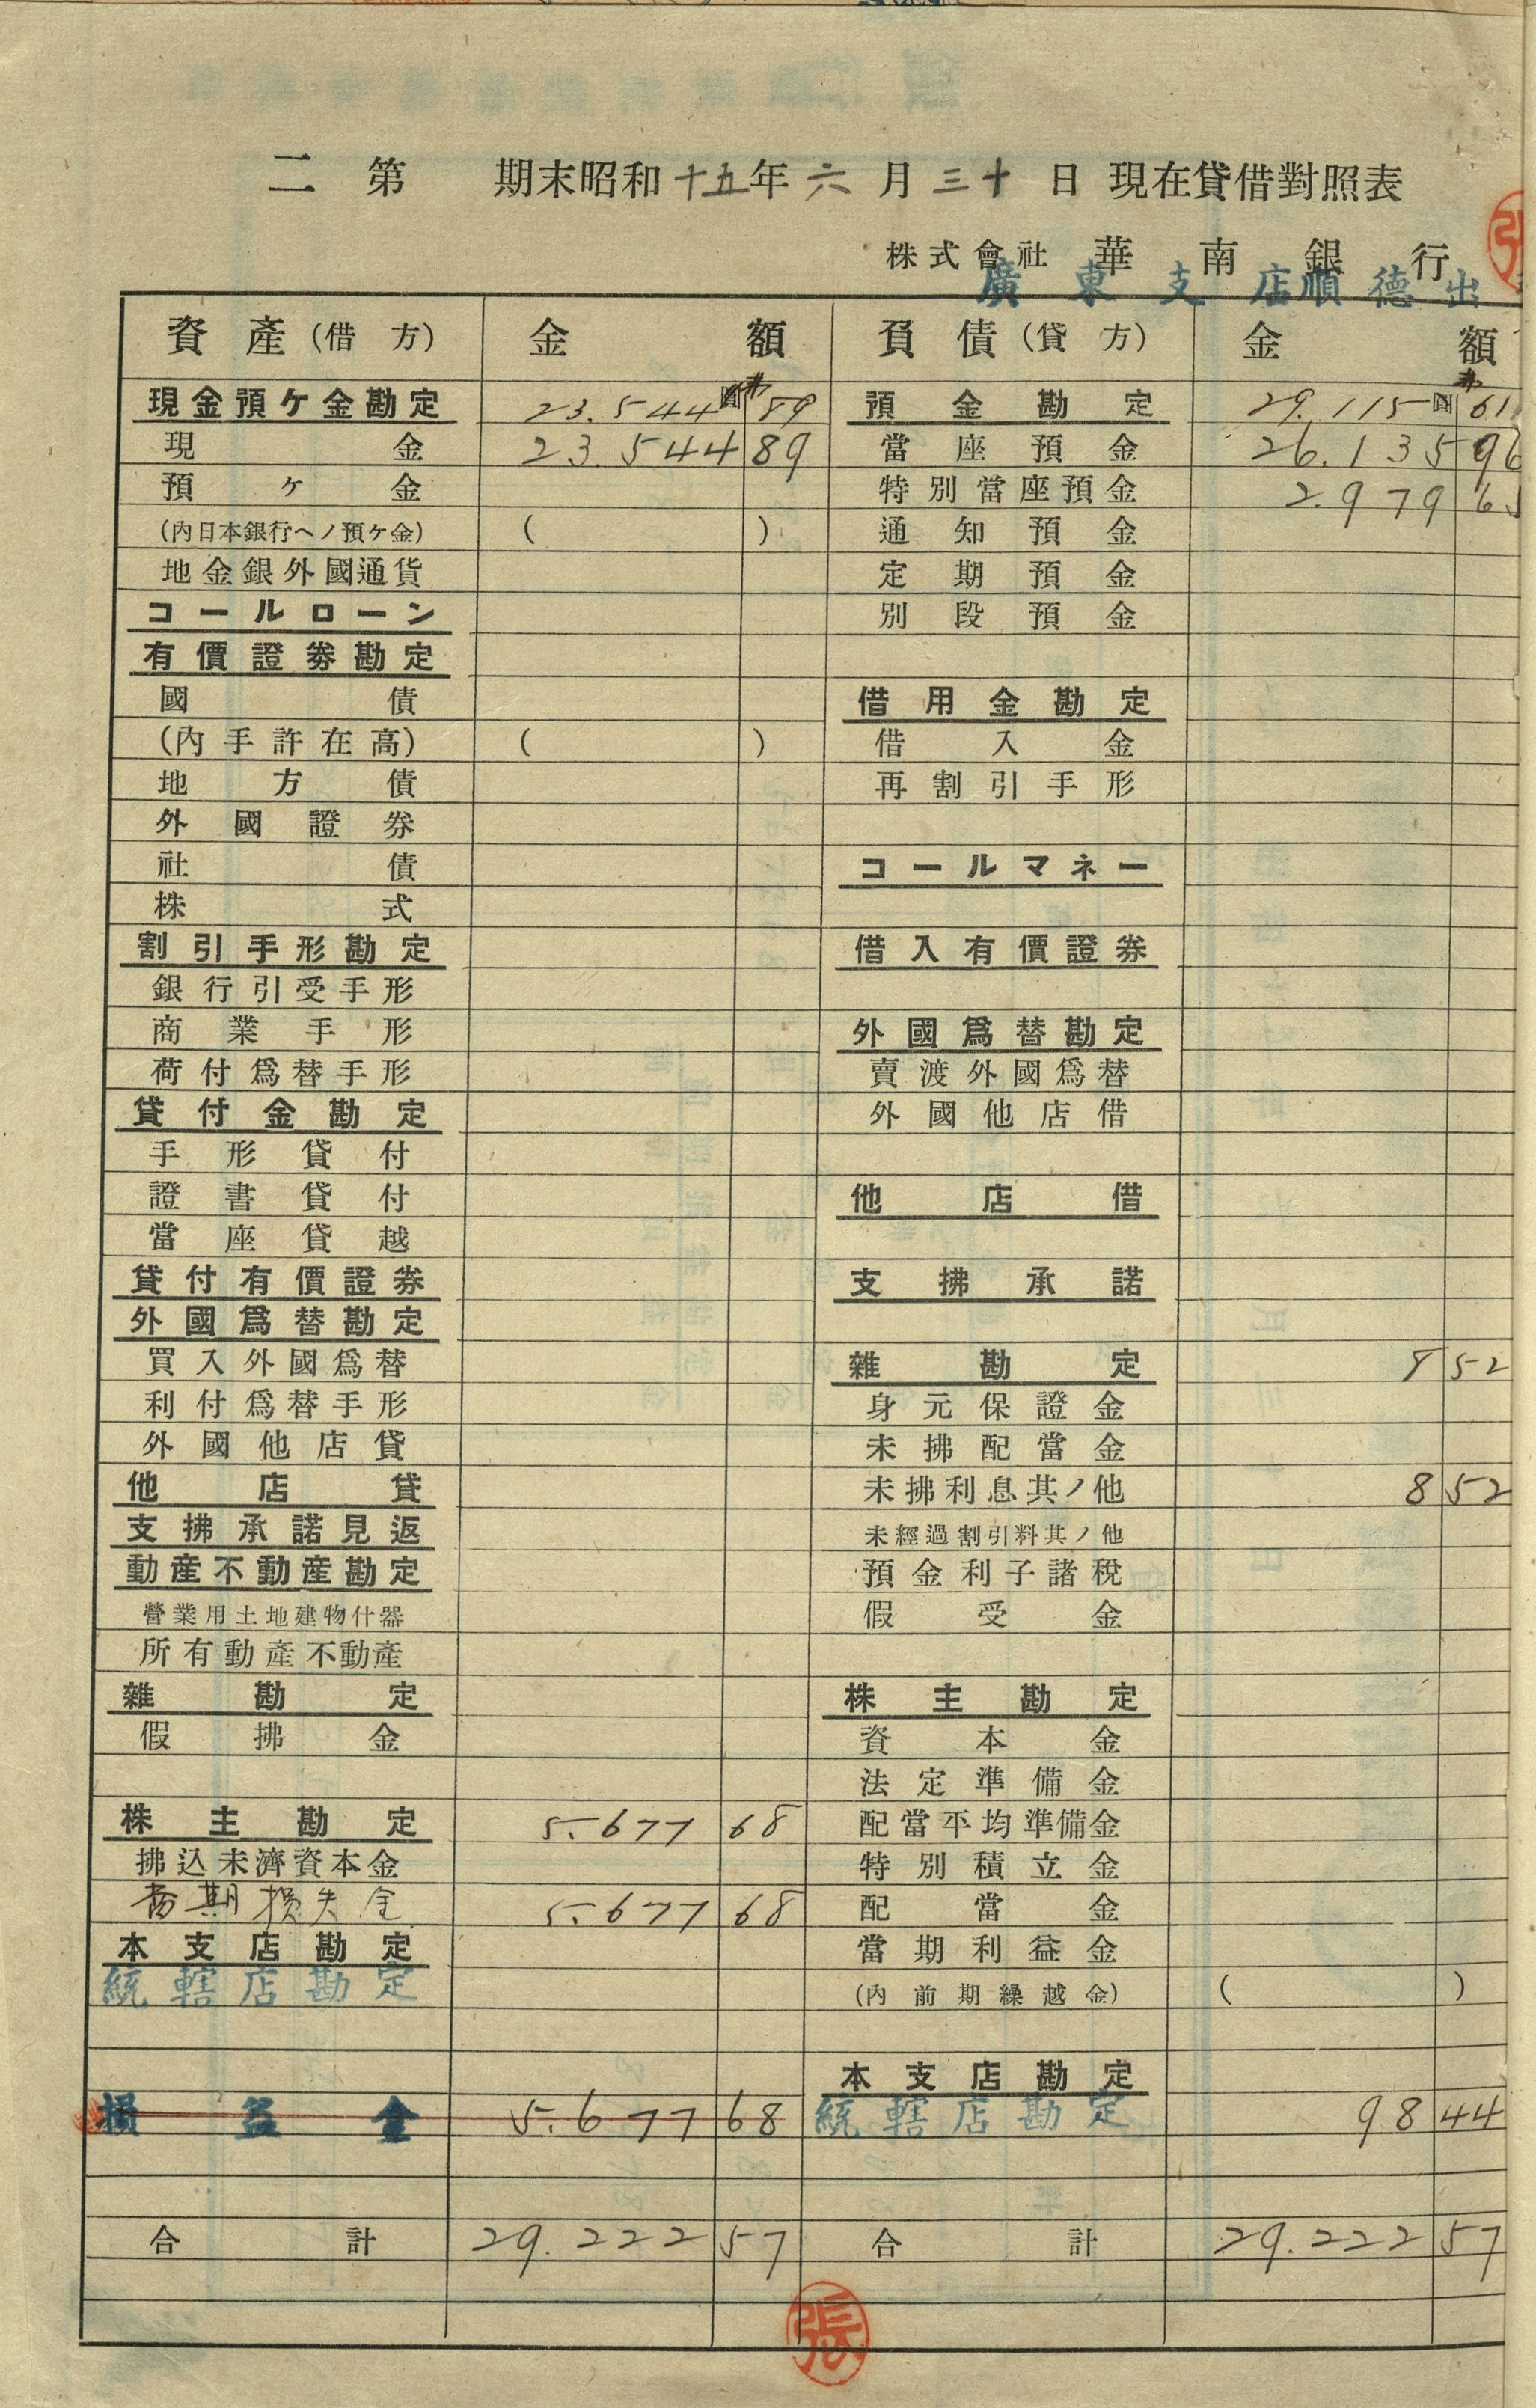 二 第 期末昭和十五年六月三十日現在貸借對照表
株式會社 華南銀行
廣東支店順德出
資產(借方) 金額 負債(貸方) 金額
現金預ヶ金勘定 23.544圓89 預金勘定 29.115圓61
現金 23.544 89 當座預金 26.135 96
預ヶ金 特別當座預金 2.979 65
(內日本銀行ヘノ預ケ金) ( ) 通知預金
地金銀外國通貨 定期預金
コールローン 別段預金
有價證券勘定
國債 借用金勘定
(內手許在高) ( ) 借入金
地方債 再割引手形
外國證券
社債 コールマネー
株式
割引手形勘定 借入有價證券
銀行引受手形
商業手形 外國爲替勘定
荷付爲替手形 賣渡外國爲替
貸付金勘定 外國他店借
手形貸付
證書貸付 他店借
當座貸越
貸付有價證券 支拂承諾
外國爲替勘定
買入外國爲替 雜勘定 8 52
利付爲替手形 身元保證金
外國他店貸 未拂配當金
他店貸 未拂利息其ノ他 8 52
支拂承諾見返 未經過割引料其ノ他
動産不動産勘定 預金利子諸稅
營業用土地建物什器 假受金
所有動產不動產
雜勘定 株主勘定
假拂金 資本金
法定準備金
株主勘定 5.677 68 配當平均準備金
拂込未濟資本金 特別積立金
當期損失金 5.677 68 配當金
本支店勘定 當期利益金
統轄店勘定 (內前期繰越金) ( )
本支店勘定
損益金 5.677 68 統轄店勘定 98 44
合計 29.222 57 合計 29.222 57
張